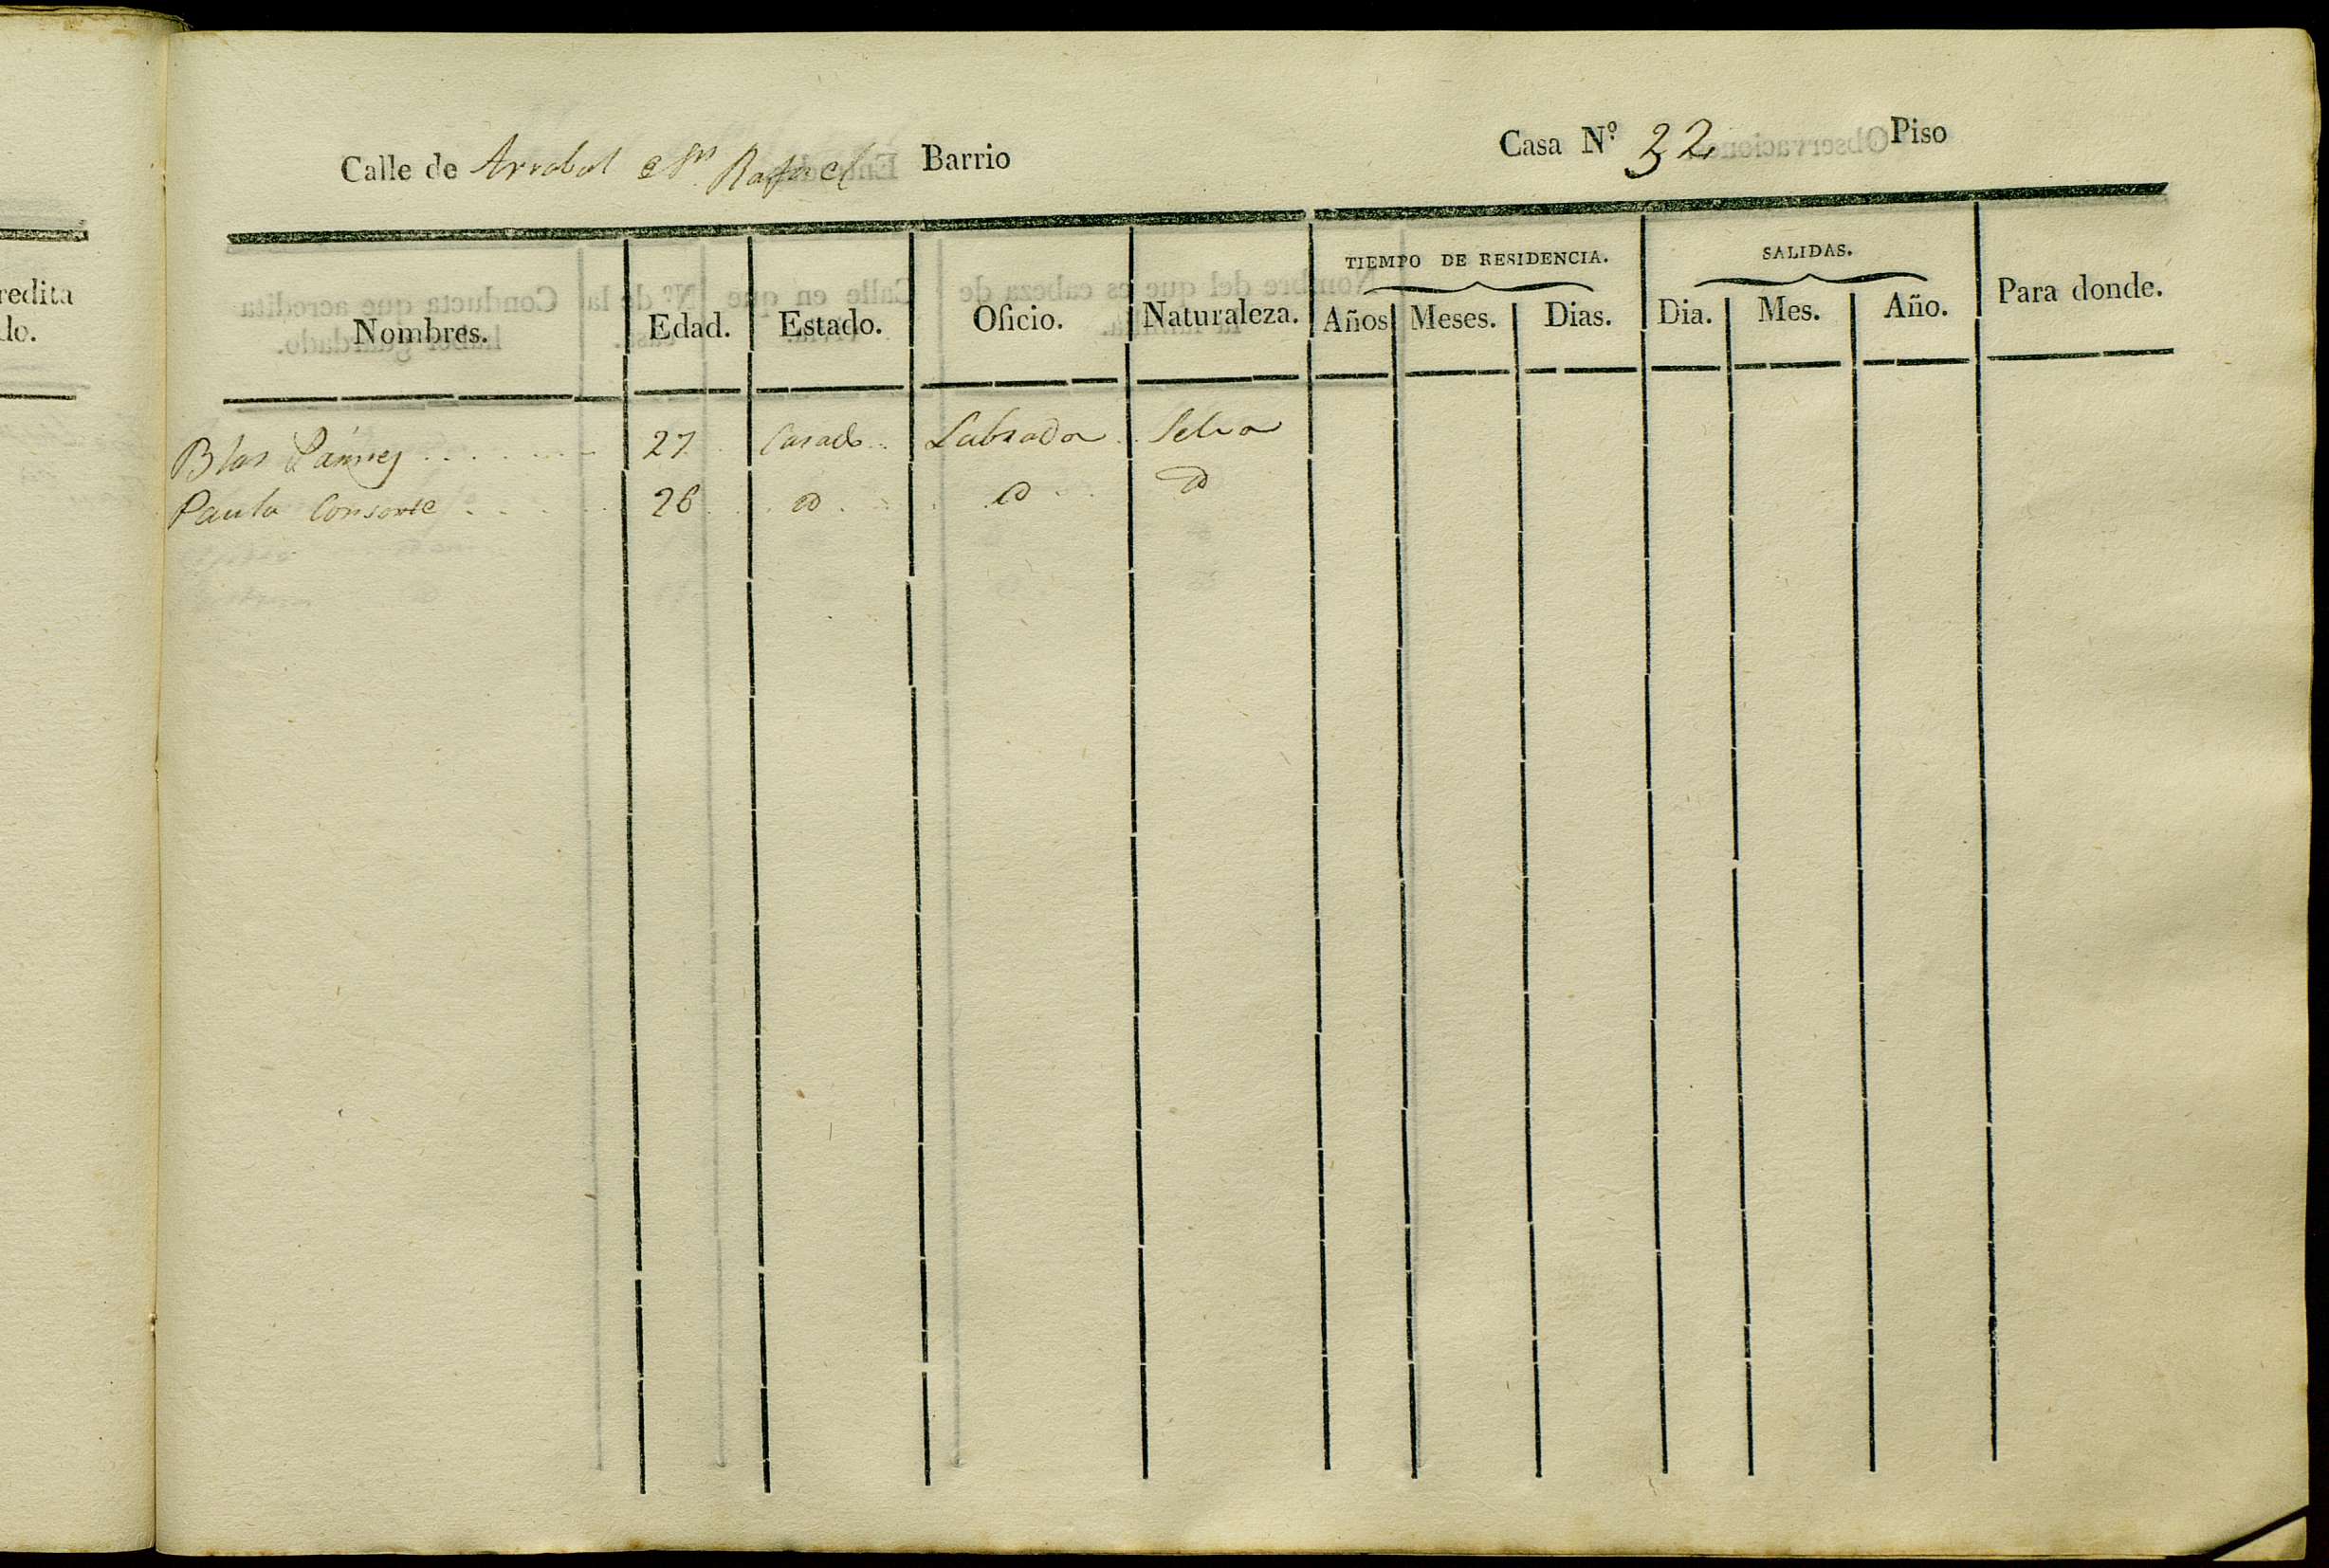 redita
do.
Calle de Arrabal Sn. Rafael Barrio Casa Nº 32 Piso
Nombres. Edad. Estado. Oficio. Naturaleza. TIEMPO DE RESIDENCIA. Años Meses. Dias. SALIDAS. Dia. Mes. Año. Para donde.
Blas 27 Casado Labrador Selva
Paula Consorte 26 id id id